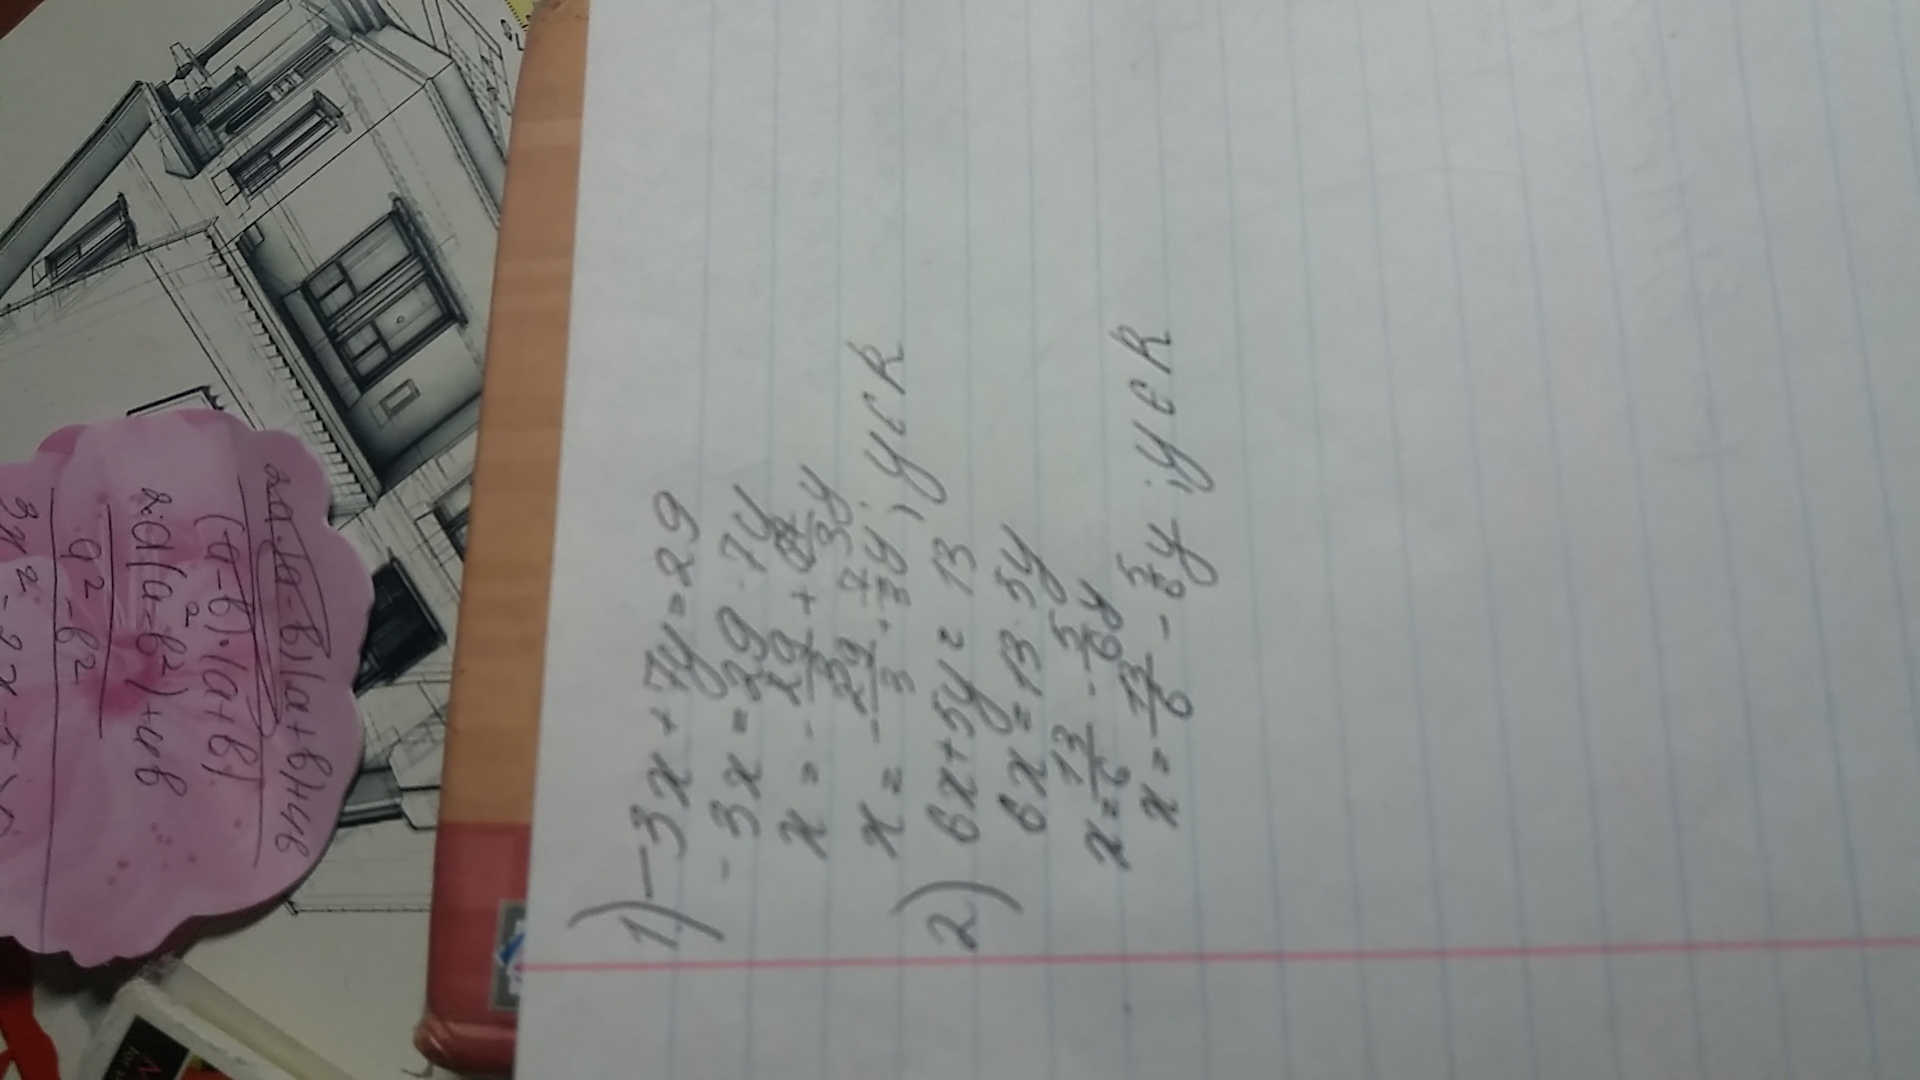 1) -3x+7y=29
-3x=29-7y
x=-29/3+7/3y
x=-29/3+7/3y, y∈R
2) 6x+5y=13
6x=13-5y
x=13/6-5/6y
x=13/6-5/6y, y∈R
2a·(a-b)(a+b)+4b
(a-b)·(a+b)
2·a(a²-b²)+4b
a²-b²